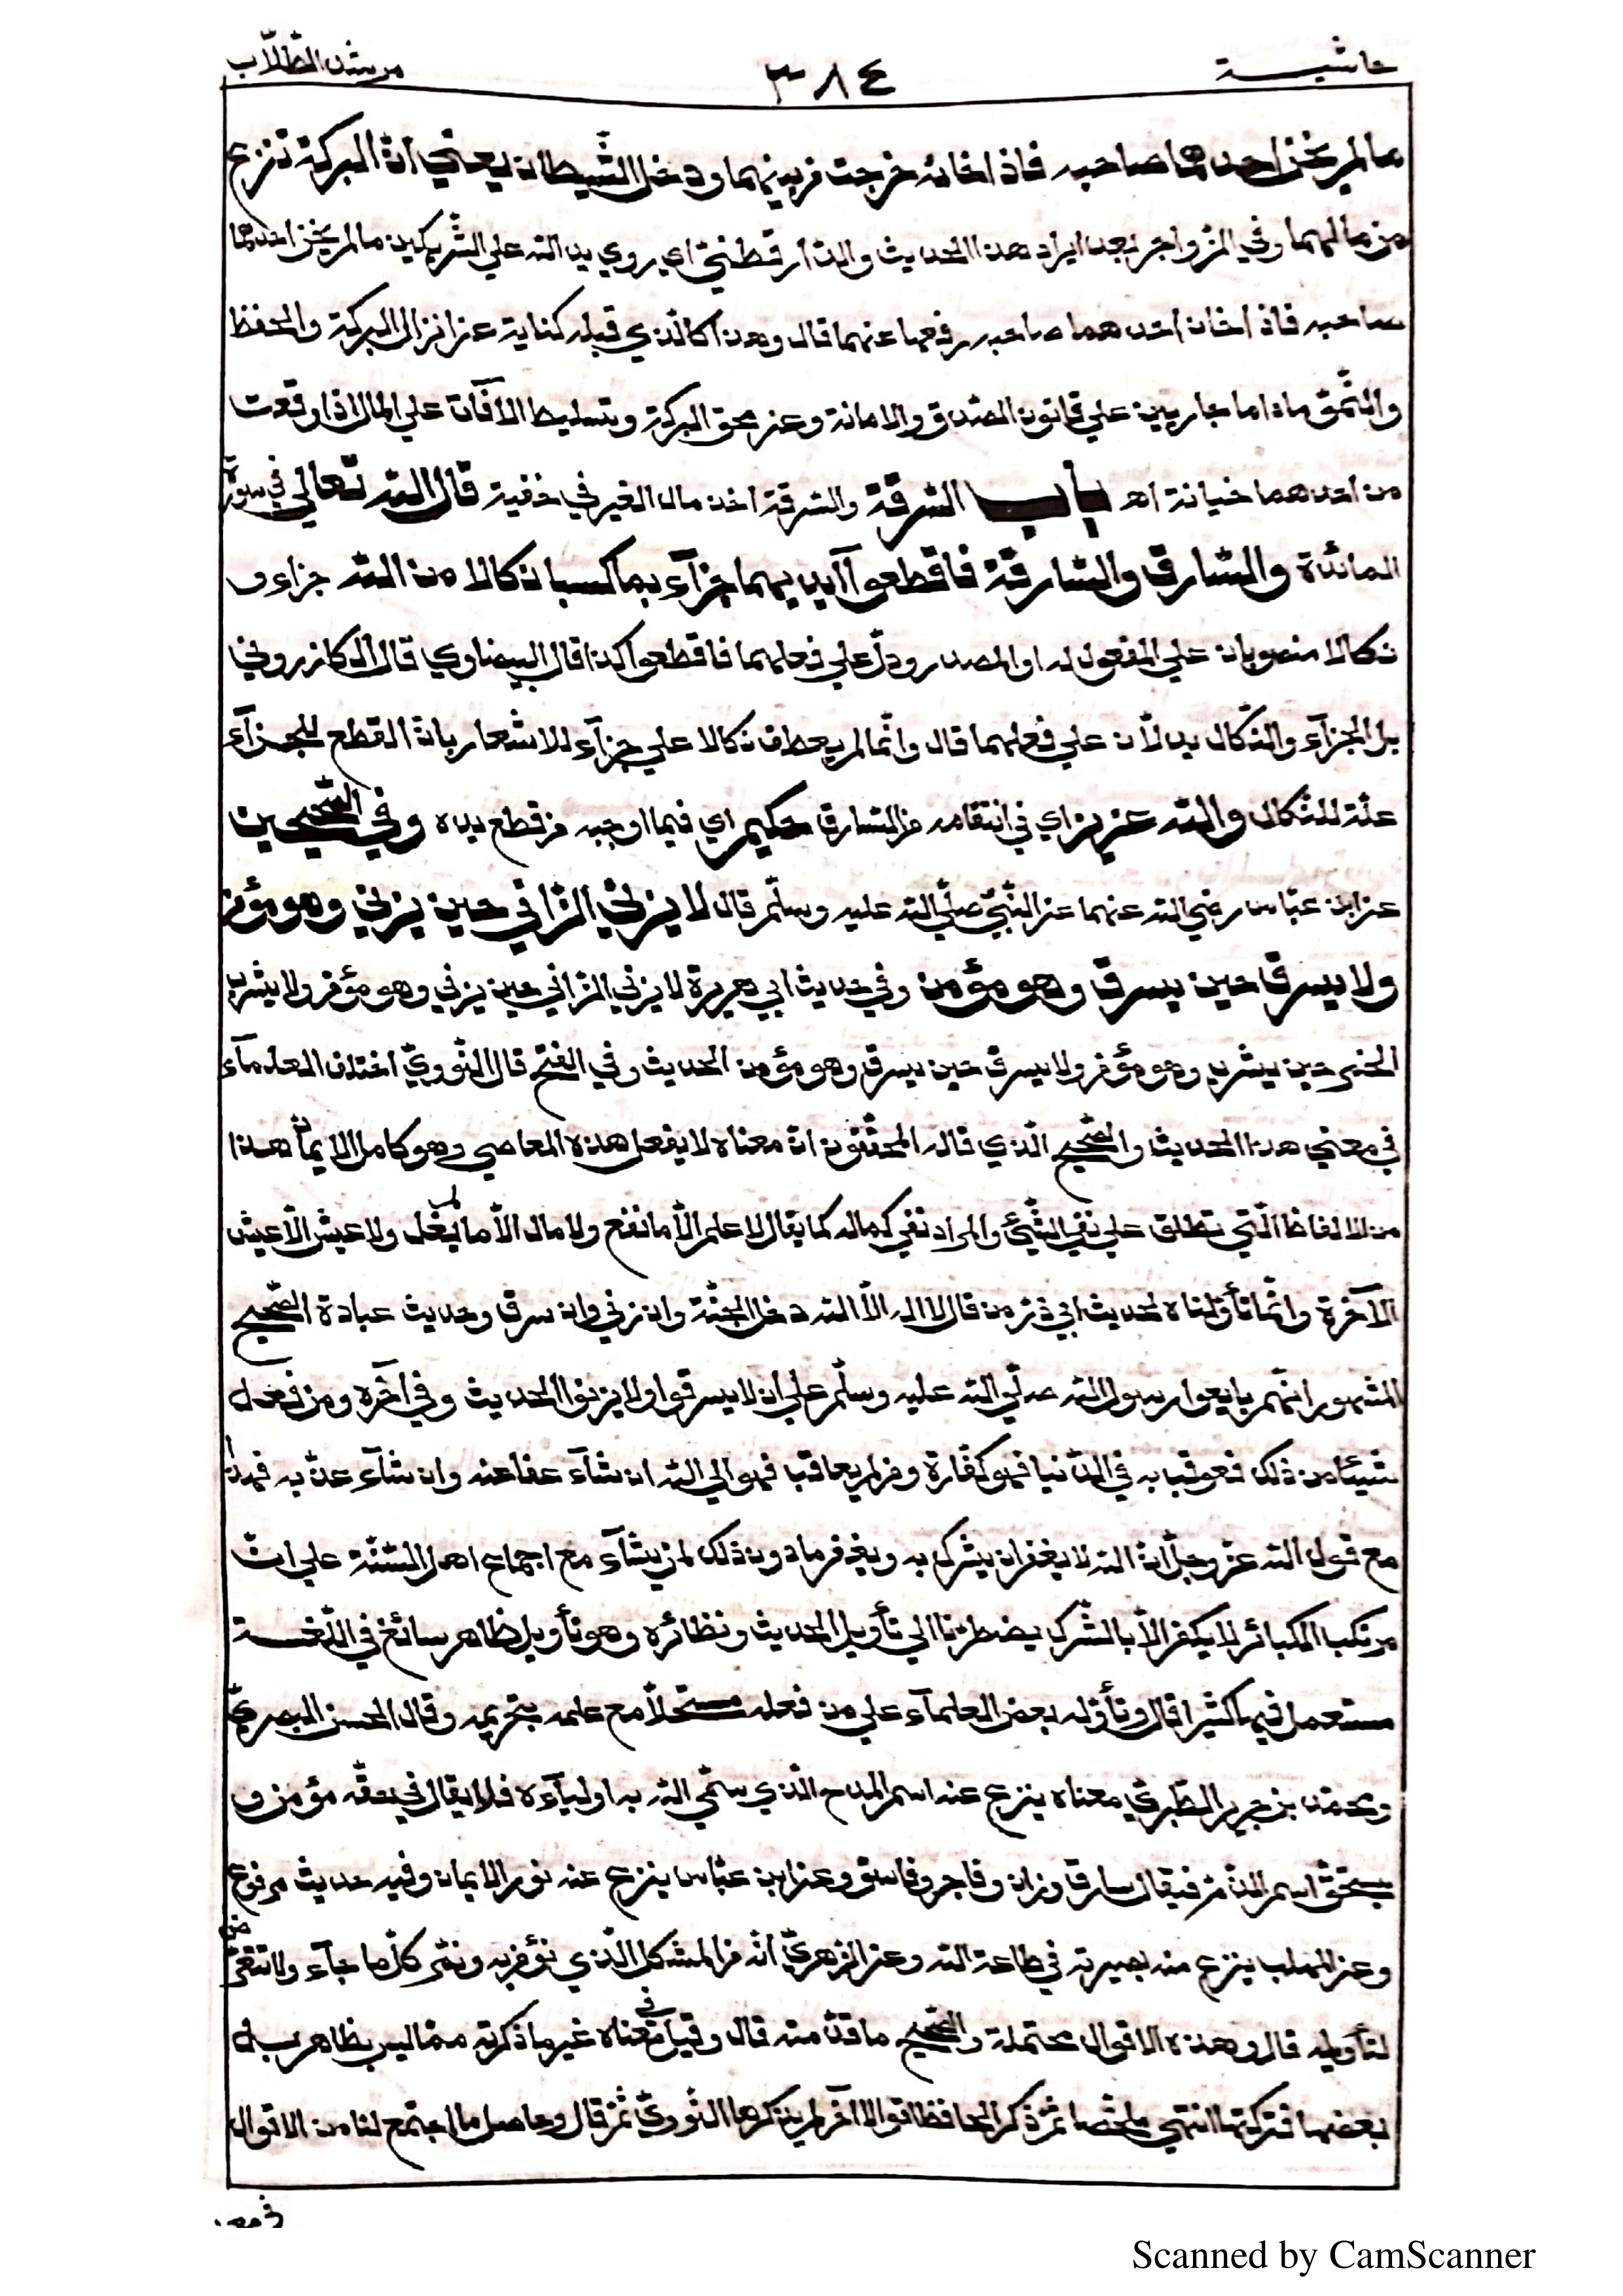 حاشية ٣٨٤ مرشد الطلّاب
مالم يخن احدهما صاحبه فاذا خانه خرجت من بينهما ودخل الشّيطان يعني انّ البركة تنزع
من مالهما وفي الزواجر بعد ايراد هذا الحديث والدّارقطنيّ اي روي يد الله علي الشّريكين مالم يخن احدهما
صاحبه فاذا خان احدهما صاحبه رفعها عنهما قال وهذا كالّذي قبله كناية عن انزال البركة والحفظ
والنّموّ ماداما جاريين علي قانون الصّدق والامانة وعن محق البركة وتسليط الآفات علي المال اذا وقعت
من احدهما خيانة اه باب السّرقة والسّرقة اخذ مال الغير في خفية قال الله تعالي في سورة
المائدة والسّارق والسّارقة فاقطعوآ ايديهما جزآء بما كسبا نكالا من الله جزاء و
نكالا منصوبان علي المفعول له او المصدر ودلّ علي فعلهما فاقطعوا كذا قال البيضاوي قال الكازروني
بل الجزآء والنّكال يدلّان علي فعلهما قال وانّما لم يعطف نكالا علي جزآء للاشعار بانّ القطع للجزآء
علّة للنّكال والله عزيز اي في انتقامه من السّارق حكيم اي فيما اوجبه من قطع يده وفي الصّحيحين
عن ابن عبّاس رضي الله عنهما عن النّبيّ صلّي الله عليه وسلّم قال لا يزني الزّاني حين يزني وهو مؤمن
ولا يسرق حين يسرق وهو مؤمن وفي حديث ابي هريرة لا يزني الزّاني حين يزني وهو مؤمن ولا يشرب
الخمر حين يشرب وهو مؤمن ولا يسرق حين يسرق وهو مؤمن الحديث وفي الفتح قال النّوويّ اختلف العلمآء
في معني هذا الحديث والصّحيح الّذي قاله المحقّقون انّ معناه لا يفعل هذه المعاصي وهو كامل الايمان هذا
من الالفاظ الّتي تطلق علي نفي الشّيئ والمراد نفي كماله كما يقال لا علم الّا ما نفع ولا مال الّا ما يغل ولا عيش الّا عيش
الآخرة وانّما تأوّلناه لحديث ابي ذرّ من قال لا اله الّا الله دخل الجنّة وان زني وان سرق وحديث عبادة الصّحيح
المشهور انّهم بايعوا رسول الله صلّي الله عليه وسلّم علي ان لا يسرقوا ولا يزنوا الحديث وفي آخره ومن فعل
شيئا من ذلك فعوقب به في الدّنيا فهو كفّارة ومن لم يعاقب فهو الي الله ان شآء عفا عنه وان شآء عذّبه فهذا
مع قول الله عزّ وجلّ انّ الله لا يغفر ان يشرك به ويغفر مادون ذلك لمن يشآء مع اجماع اهل السّنّة علي انّ
مرتكب الكبائر لا يكفر الّا بالشّرك يضطرّنا الي تأويل الحديث ونظائره وهو تأويل ظاهر سائغ في اللّغة
مستعمل فيها كثيرا قال وتأوّله بعض العلمآء علي من فعله مستحلّا مع علمه بتحريمه وقال الحسن البصريّ
ومحمّد بن جرير الطّبريّ معناه ينزع عنه اسم المدح الّذي سمّي الله به اوليآءه فلا يقال في حقّه مؤمن و
يستحقّ اسم الذّمّ فيقال سارق وزان وفاجر وفاسق وعن ابن عبّاس ينزع عنه نور الايمان وفيه حديث مرفوع
وعن المهلب ينزع منه بصيرته في طاعة الله وعن الزّهريّ انّه من المشكل الّذي نؤمن به ونمرّ كما جآء ولا نتعرّض
لتأويله قال وهذه الاقوال محتملة والصّحيح ما قدّمته قال وقيل في معناه غير ما ذكرته ممّا ليس بظاهر بل
بعضها فتركتها انتهي ملخّصا ثمّ ذكر الحافظ اقوالا آخر لم يذكرها النّوويّ ثمّ قال وحاصل ما اجتمع لنا من الاقوال
في معنـ
Scanned by CamScanner